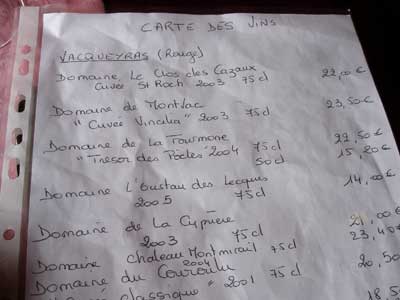 CARTE DES VINS
VACQUEYRAS (Rouge)
Domaine Le Clos des Cazaux
Cuvée St Roch 2003 75cl 22,00€
Domaine de Montvac
"Cuvée Vincila" 2003 75cl 23,50€
Domaine de La Fourmone
"Trésor des Poètes" 2004 75cl 22,50€
50cl 15,20€
Domaine L'Oustau des Lecques
2005 75cl 14,00€
Domaine de La Cyprière
2003 75cl 21,00€
Domaine Chateau Montmirail 75cl 23,40€
2004
Domaine du Couroulu 20,50
classique" 2001 75cl
18,50